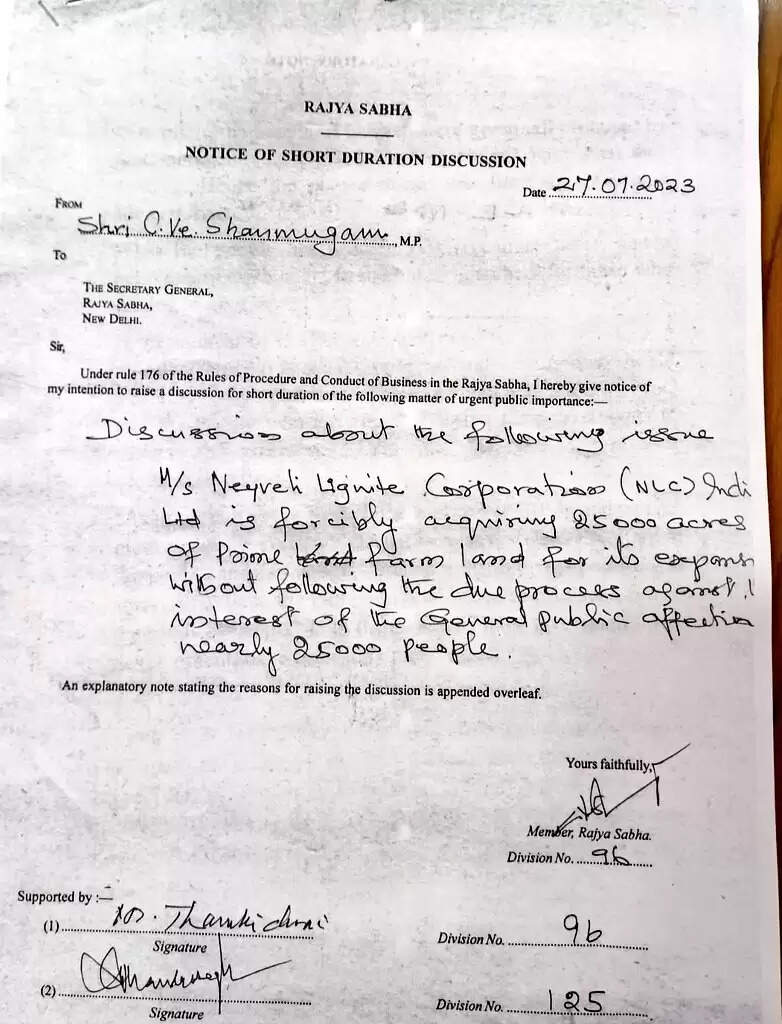 RAJYA SABHA
NOTICE OF SHORT DURATION DISCUSSION
Date 27.07.2023
FROM
Shri C.Ve. Shanmugam, M.P.
To
THE SECRETARY GENERAL,
RAJYA SABHA,
NEW DELHI.
Sir,
Under rule 176 of the Rules of Procedure and Conduct of Business in the Rajya Sabha, I hereby give notice of
my intention to raise a discussion for short duration of the following matter of urgent public importance:—
Discussion about the following issue
M/s Neyveli Lignite Corporation (NLC) Indi
Ltd is forcibly acquiring 25000 acres
of Prime farm land for its expans
without following the due process against
interest of the General public affectin
nearly 25000 people.
An explanatory note stating the reasons for raising the discussion is appended overleaf.
Yours faithfully,
Member, Rajya Sabha.
Division No. 96
Supported by :—
(1) Division No. 96
Signature
(2) Division No. 125
Signature